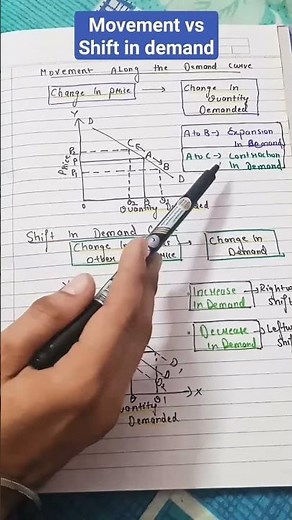 Movement vs
Shift in demand
Movement Along the Demand Curve
Change In price → Change In
Quantity
Demanded
Y
D
P2
P
P1
C
E
A
B
D
Price
A to B → Expansion
In Demand
A to C → Contraction
In Demand
O
Q2
Q
Q1
Quantity Demanded
Shift in Demand
Change In
Other
→ Change In
Demand
Increase
In Demand
→ Rightw
Shif
Decrease
In Demand
→ Leftw
Shif
D1
X
Quantity
Demanded